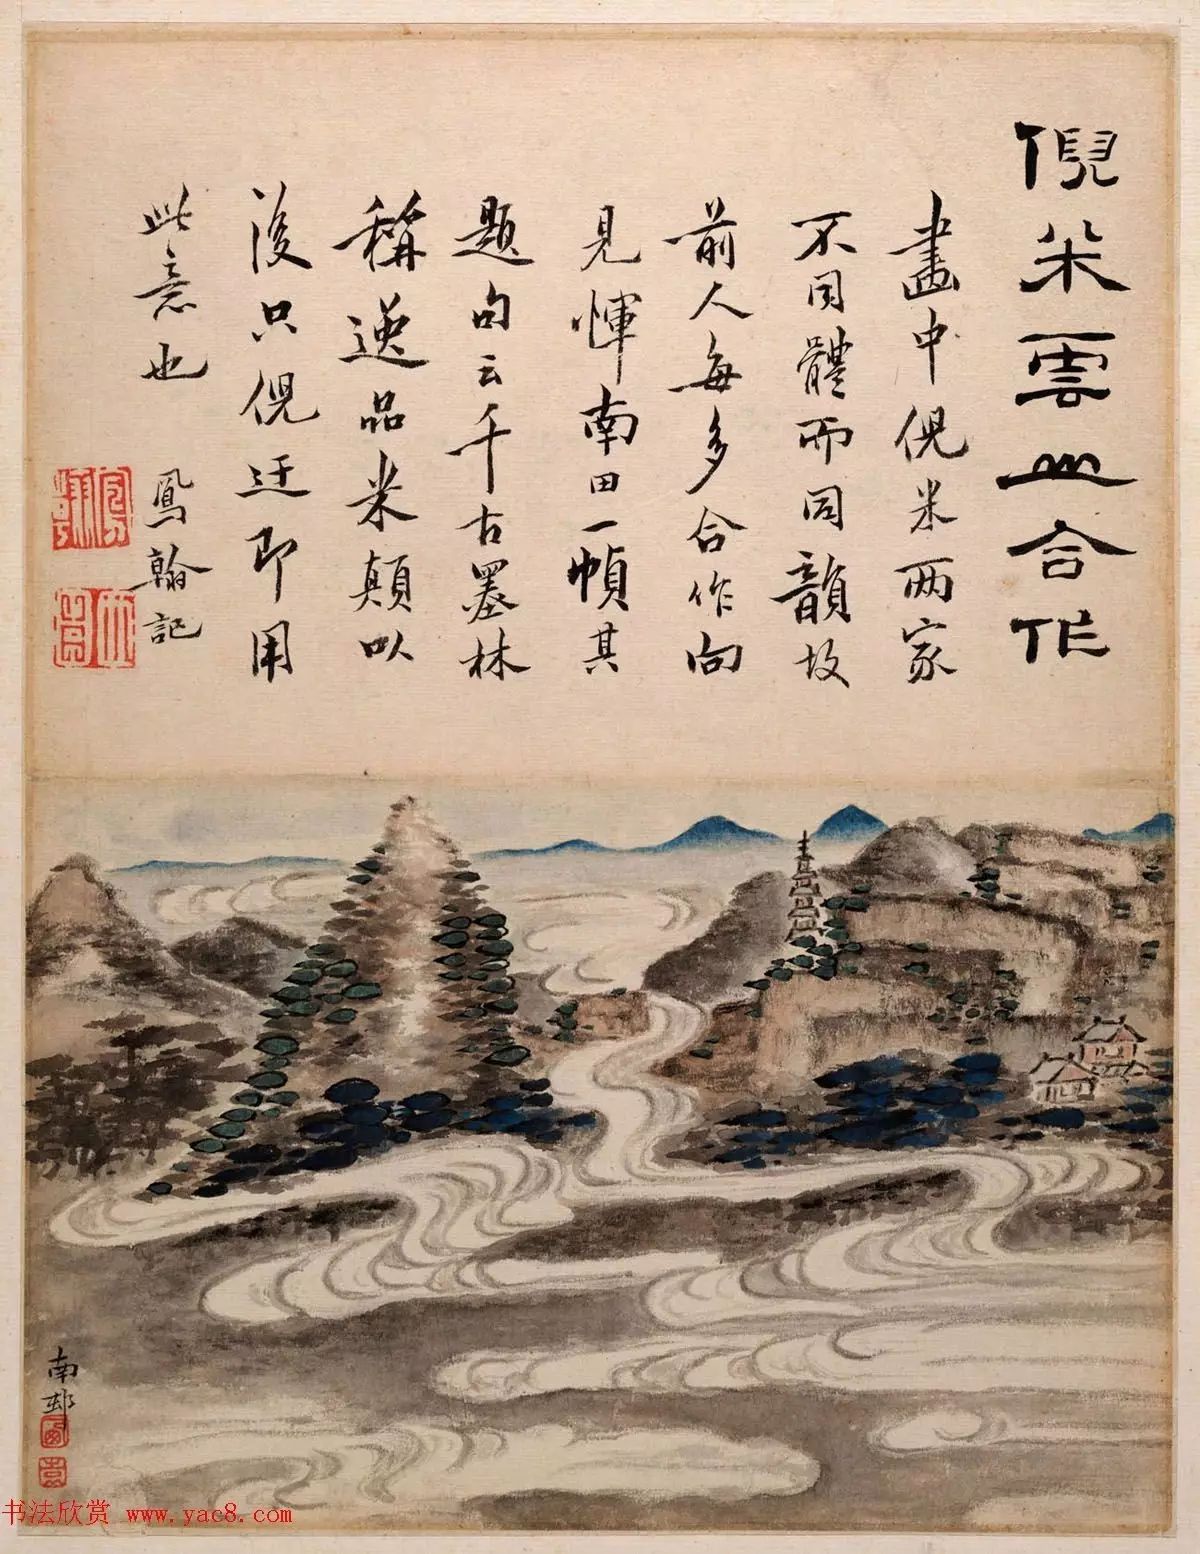 倪米雲山合作
畫中倪米两家
不同體而同韻故
前人每多合作向
見惲南田一幀其
題句云千古墨林
稱逸品米顛以
後只倪迂即用
此意也 鳳翰記
南邨
书法欣赏 www.yac8.com